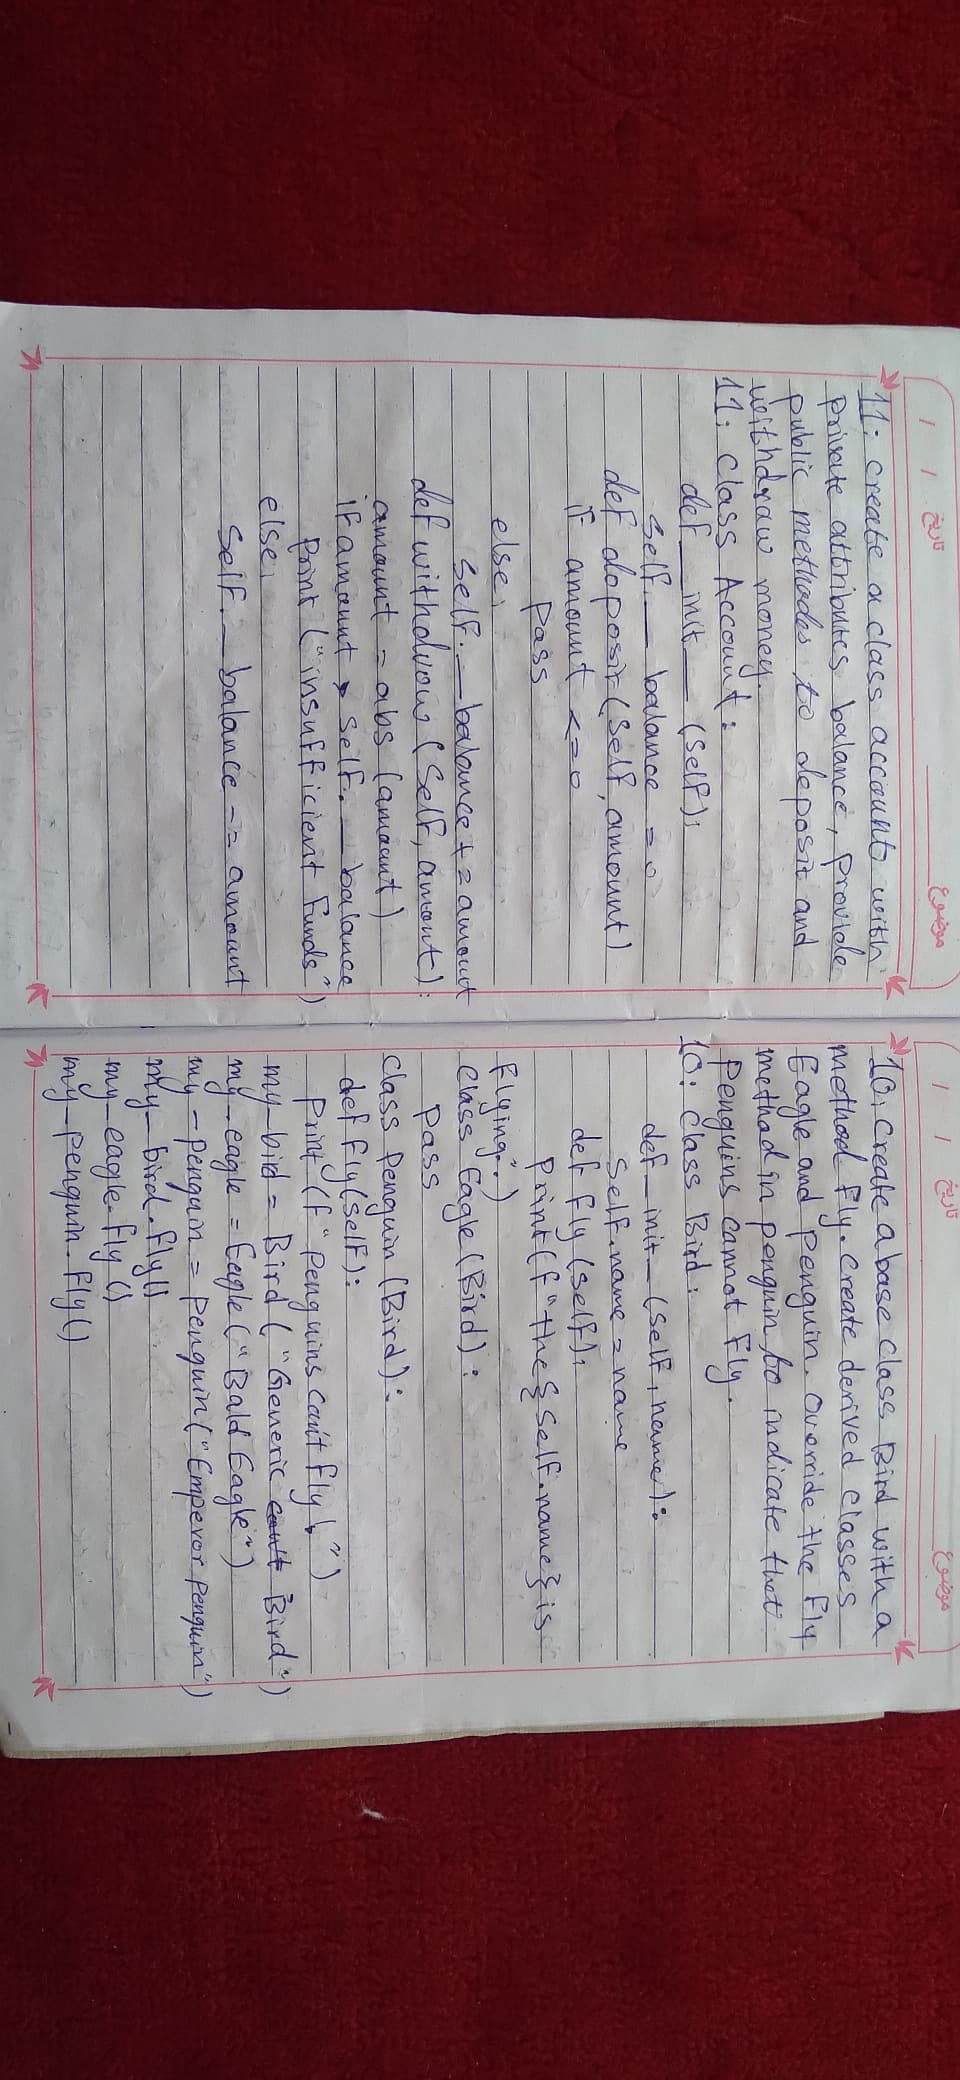 تاریخ / /
موضوع
11: create a class account with
private attributes balance, provide
public methodes to deposit and
withdraw money.
11: class Account:
def __init__ (self):
self.__balance = 0
def deposit (self, amount)
if amount <= 0
pass
else:
self.__balance += amount
def withdraw (self, amount):
amount = abs (amount)
if amount > self.__balance
print ("insufficient funds")
else:
self.__balance -= amount
تاریخ / /
موضوع
10: create a base class Bird with a
method fly. create derived classes
Eagle and penguin. override the fly
method in penguin to indicate that
penguins cannot fly.
10: class Bird:
def __init__ (self, name):
self.name = name
def fly (self):
print (f "the {self.name} is
flying.")
class Eagle (Bird):
pass
class penguin (Bird):
def fly (self):
print (f "penguins can't fly!")
my_bird = Bird ("Generic Bird")
my_eagle = Eagle ("Bald Eagle")
my_penguin = penguin ("Emperor penguin")
my_bird.fly()
my_eagle.fly ()
my_penguin.fly()